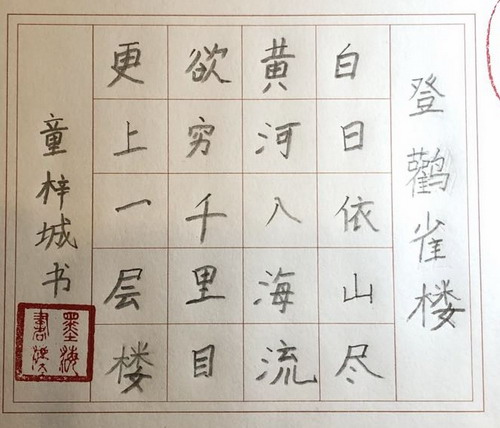 登鹳雀楼
白日依山尽
黄河入海流
欲穷千里目
更上一层楼
童梓城书
墨海